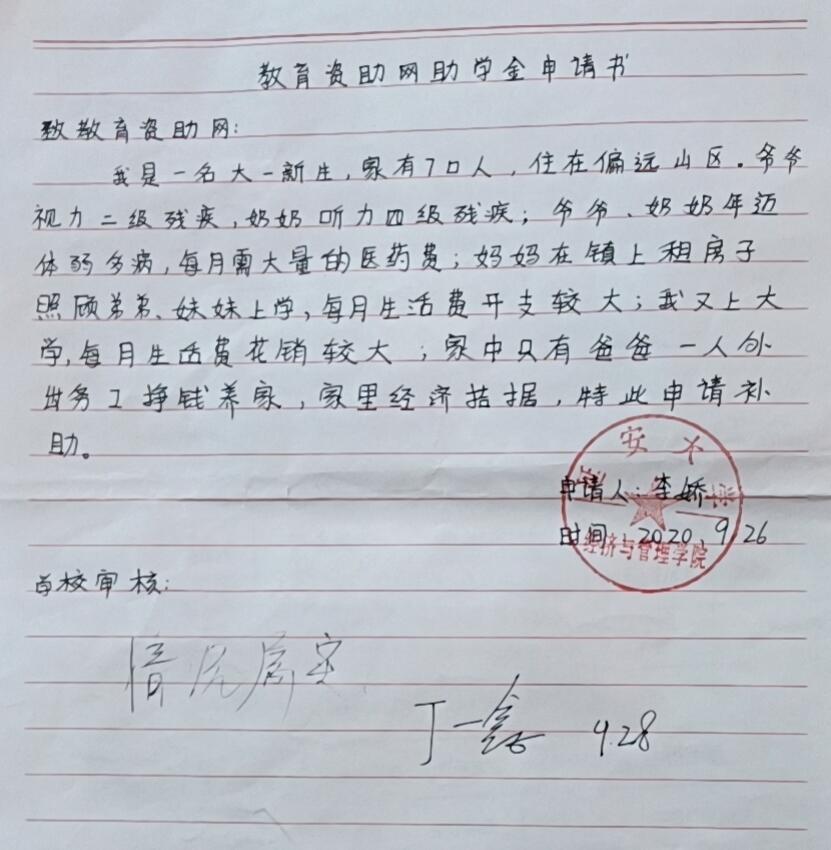 教育资助网助学金申请书
致教育资助网:
我是一名大一新生,家有7口人,住在偏远山区。爷爷
视力二级残疾,奶奶听力四级残疾;爷爷、奶奶年迈
体弱多病,每月需大量的医药费;妈妈在镇上租房子
照顾弟弟、妹妹上学,每月生活费开支较大;我又上大
学,每月生活费花销较大;家中只有爸爸一人外
出务工挣钱养家,家里经济拮据,特此申请补
助。
申请人:李娇
时间:2020.9.26
经济与管理学院
学校审核:
情况属实
丁一鑫 9.28